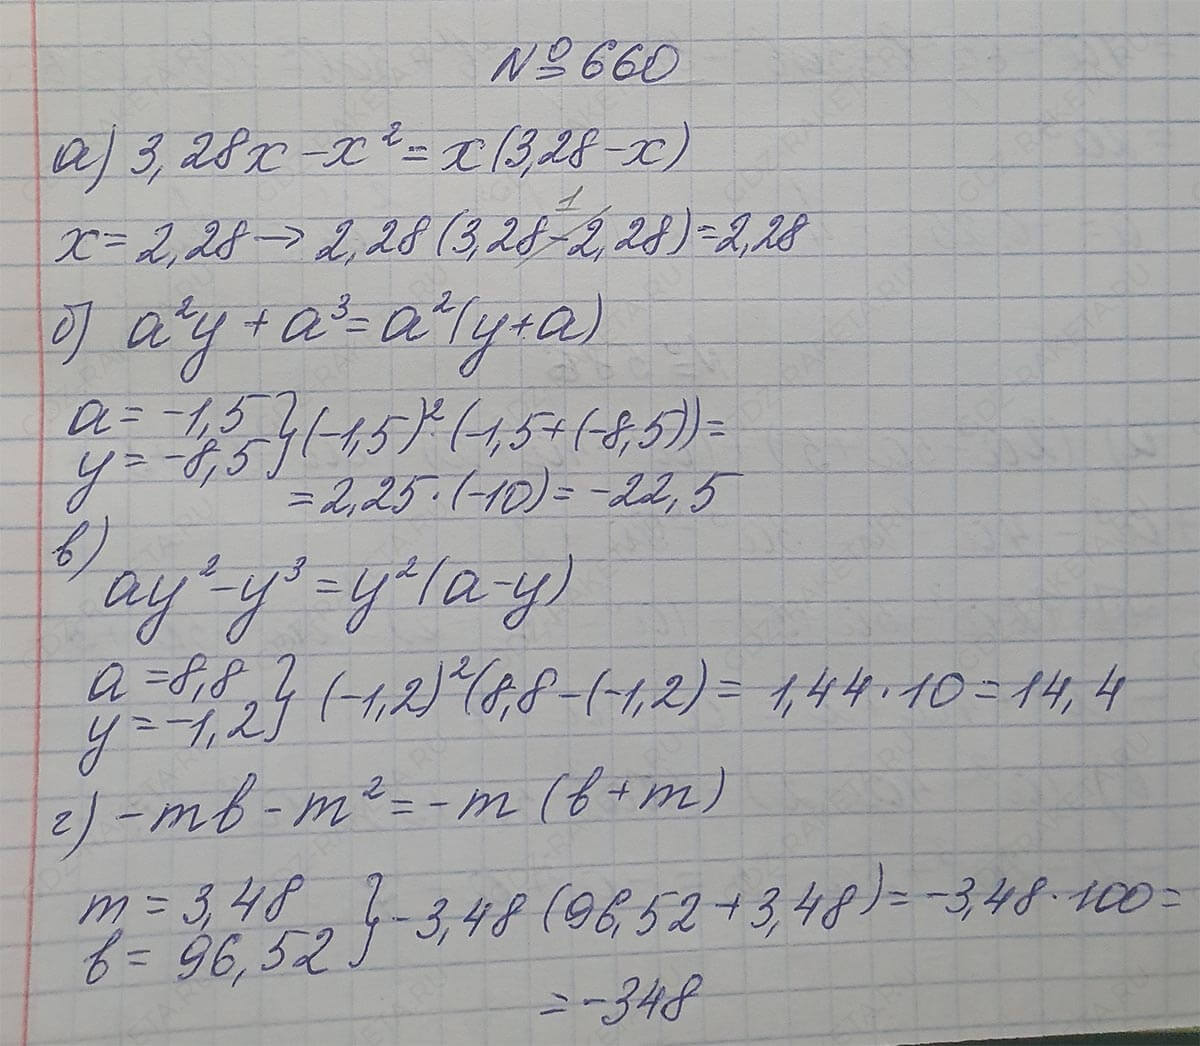 № 660
а) 3,28x - x² = x(3,28 - x)
1
x = 2,28 → 2,28(3,28 - 2,28) = 2,28
б) a²y + a³ = a²(y + a)
a = -1,5
y = -8,5 } (-1,5)² · (-1,5 + (-8,5)) =
= 2,25 · (-10) = -22,5
в)
ay² - y³ = y²(a - y)
a = 8,8
y = -1,2 } (-1,2)²(8,8 - (-1,2) = 1,44 · 10 = 14,4
г) -mв - m² = -m (в + m)
m = 3,48
в = 96,52 } -3,48 (96,52 + 3,48) = -3,48 · 100 =
= -348
GDZ-RAKETA.RU